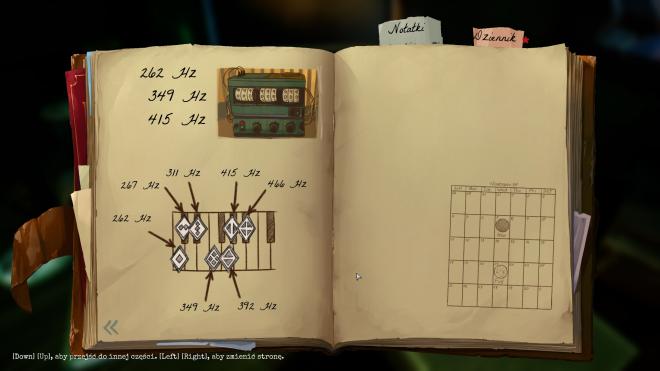 Notatki
Dziennik
262 Hz
349 Hz
415 Hz
311 Hz
415 Hz
267 Hz
466 Hz
262 Hz
349 Hz
392 Hz
[Down] [Up], aby przejść do innej części. [Left] [Right], aby zmienić stronę.